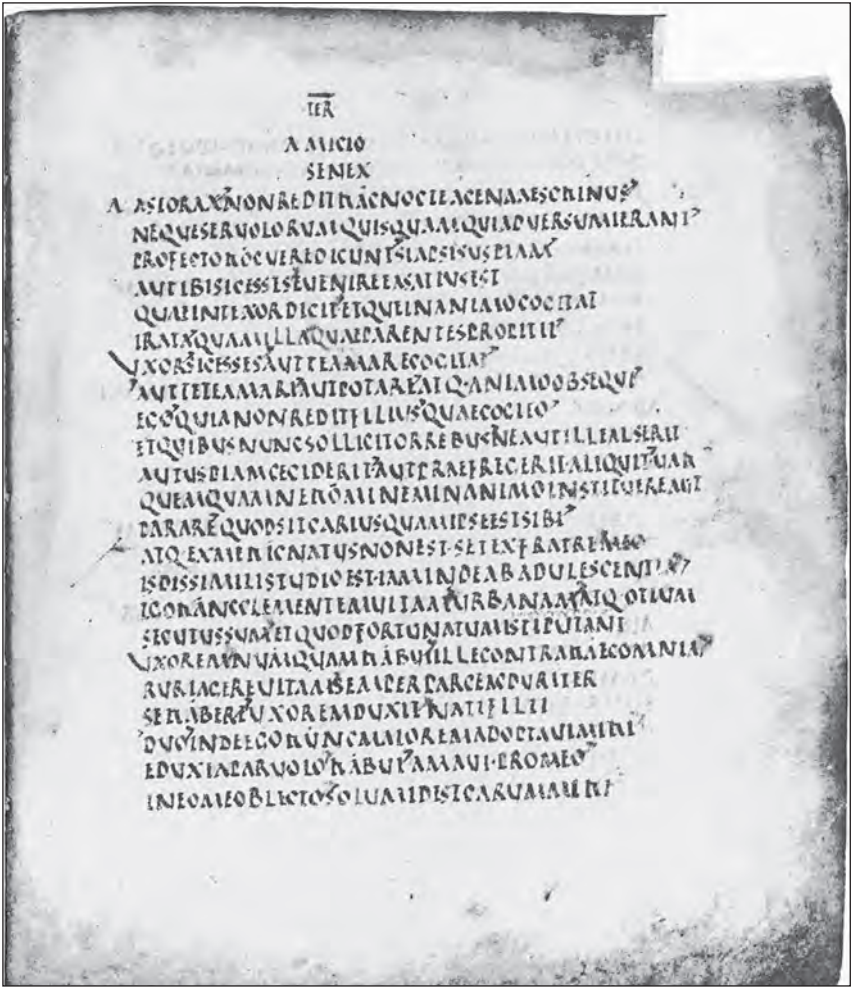 TER
A MICIO
SENEX
A ASTORAX NON REDIIT HAC NOCTE A CENA AESCHINUS
NEQUE SERVOLORUM QUISQUAM QUI ADVERSUM IERANT
PROFECTO HOC VERE DICUNT SI APSIS USPIAM
AUT IBI SI CESSIS EVENIRE EA SATIUS EST
QUAE IN TE UXOR DICIT ET QUE IN ANIMO COGITAT
IRATA QUAM ILLA QUAE PARENTES PROPITII
UXOR SI CESSES AUT TE AMARE COGITAT
AUT TETE AMARI AUT POTARE ATQ· ANIMO OBSEQUI
EGO QUIA NON REDIT FILLIUS QUAE COGITO
ET QUIBUS NUNC SOLLICITOR REBUS NE AUT ILLE ALSERIT
AUT USPIAM CECIDERIT AUT PRAEFREGERIT ALIQUIT VAH
QUEMQUAMNE HOMINEM IN ANIMO INSTITUERE AUT
PARARE QUOD SIT CARIUS QUAM IPSE EST SIBI
ATQ· EX ME HIC NATUS NON EST· SET EX FRATRE MEO
IS DISSIMILI STUDIO EST· IAM INDE AB ADULESCENTIA
EGO HANC CLEMENTEM VITAM URBANAM ATQ· OTIUM
SECUTUS SUM ET QUOD FORTUNATUM ISTI PUTANT
UXOREM NUMQUAM HABUI ILLE CONTRA HAEC OMNIA
RURI AGERE VITAM SEMPER PARCE AC DURITER
SE HABERE UXOREM DUXIT NATI FILLII
DUO INDE EGO HUNC MAIOREM ADOPTAVI MIHI
EDUXI A PARVOLO HABUI AMAVI· PRO MEO
IN EO ME OBLECTO SOLUM ID EST CARUM MIHI